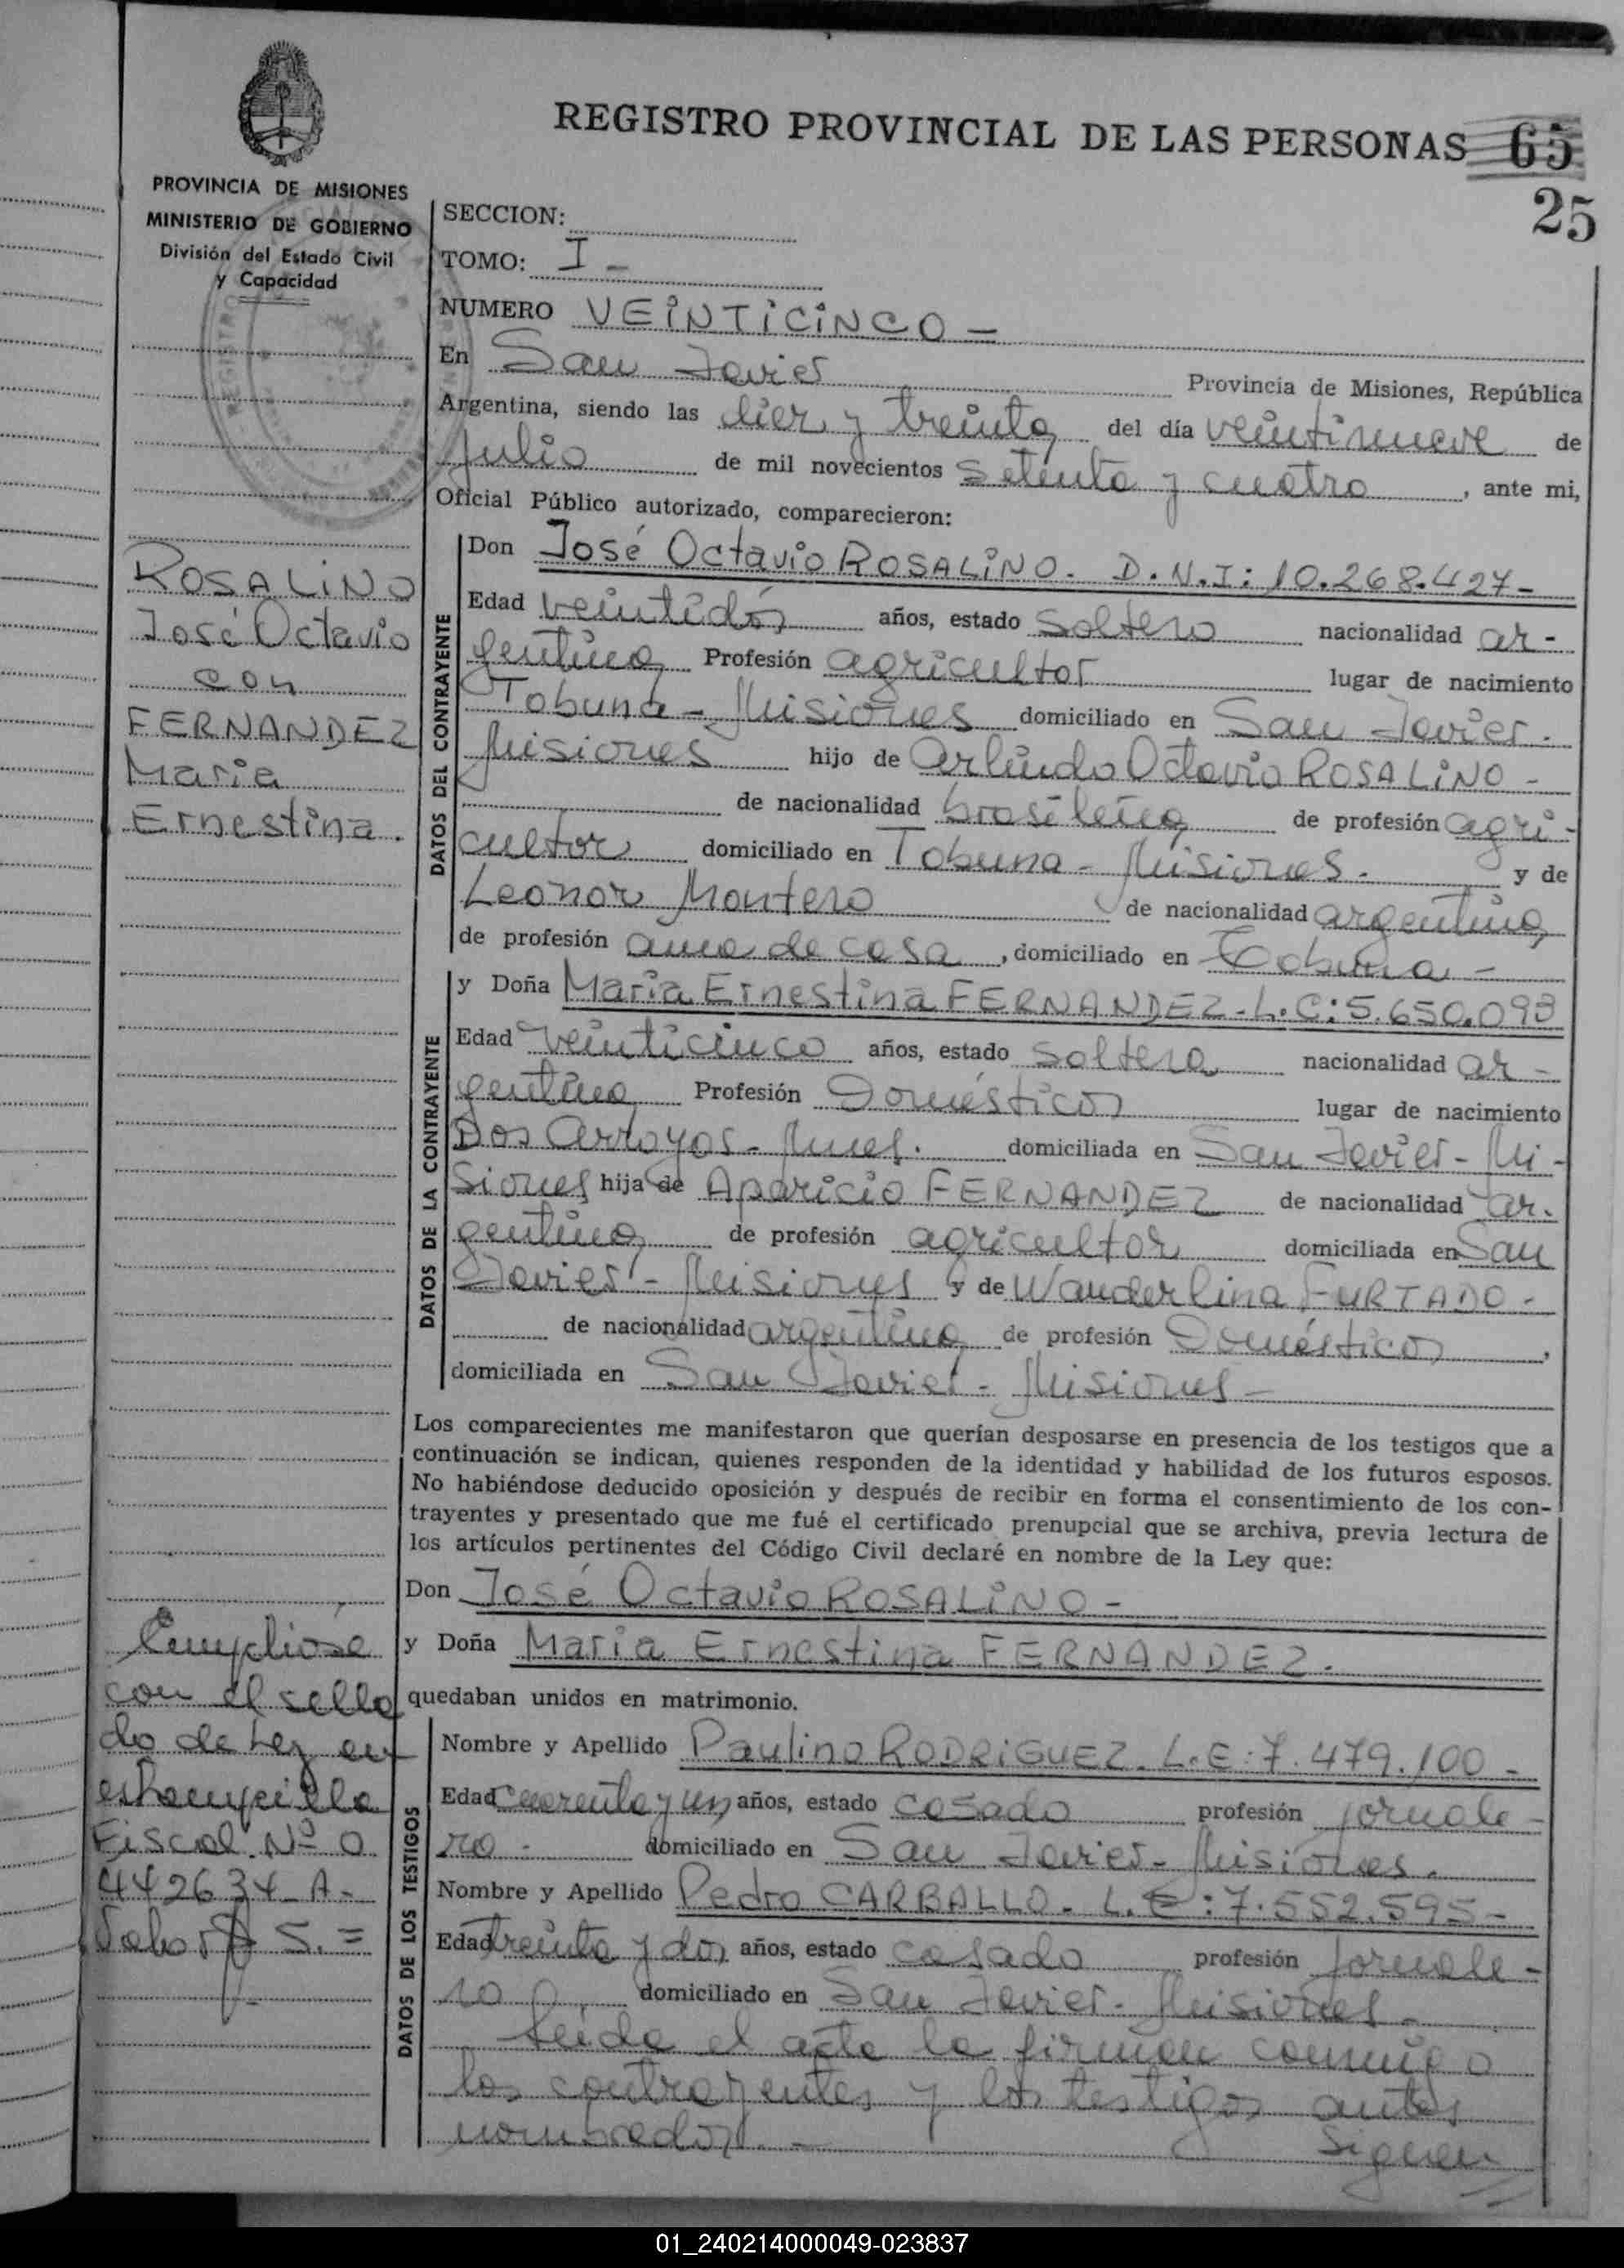 REGISTRO PROVINCIAL DE LAS PERSONAS 65
25
PROVINCIA DE MISIONES
MINISTERIO DE GOBIERNO
División del Estado Civil
y Capacidad
SECCION:
TOMO: I -
NUMERO VEINTICINCO -
En San Javier Provincia de Misiones, República
Argentina, siendo las diez y treinta del día veintinueve de
Julio de mil novecientos setenta y cuatro, ante mi,
Oficial Público autorizado, comparecieron:
ROSALINO
José Octavio
con
FERNANDEZ
Maria
Ernestina.
DATOS DEL CONTRAYENTE
Don José Octavio ROSALINO. D.N.I: 10.268.427-
Edad veintidós años, estado soltero nacionalidad ar-
gentina Profesión agricultor lugar de nacimiento
Tobuna - Misiones domiciliado en San Javier.
Misiones hijo de Arlindo Octavio ROSALINO -
de nacionalidad brasileña de profesión agri-
cultor domiciliado en Tobuna - Misiones. y de
Leonor Montero de nacionalidad argentina
de profesión ama de casa, domiciliado en Tobuna -
DATOS DE LA CONTRAYENTE
y Doña Maria Ernestina FERNANDEZ. L.C: 5.650.093
Edad veinticinco años, estado soltera nacionalidad ar-
gentina Profesión Domésticos lugar de nacimiento
Dos Arroyos - Mnes. domiciliada en San Javier - Mi-
siones hija de Aparicio FERNANDEZ de nacionalidad ar.
gentina de profesión agricultor domiciliada en San
Javier - Misiones y de Wanderlina FURTADO -
de nacionalidad argentina de profesión Domésticos,
domiciliada en San Javier - Misiones -
Los comparecientes me manifestaron que querían desposarse en presencia de los testigos que a
continuación se indican, quienes responden de la identidad y habilidad de los futuros esposos.
No habiéndose deducido oposición y después de recibir en forma el consentimiento de los con-
trayentes y presentado que me fué el certificado prenupcial que se archiva, previa lectura de
los artículos pertinentes del Código Civil declaré en nombre de la Ley que:
Don José Octavio ROSALINO -
y Doña Maria Ernestina FERNANDEZ.
quedaban unidos en matrimonio.
Cumplióse
con el sella
do de Ley en
estampilla
Fiscal Nº 0
442634-A-
Valor $ 5.=
DATOS DE LOS TESTIGOS
Nombre y Apellido Paulino RODRIGUEZ. L.E: 7.479.100 -
Edad cuarenta y un años, estado casado profesión jornale-
ro - domiciliado en San Javier - Misiones.
Nombre y Apellido Pedro CARBALLO. L.E: 7.552.595-
Edad treinta y dos años, estado casado profesión jornale-
ro domiciliado en San Javier - Misiones -
Leída el acta la firman conmigo
los contrayentes y los testigos antes
nombrados. - Siguen
01_240214000049-023837